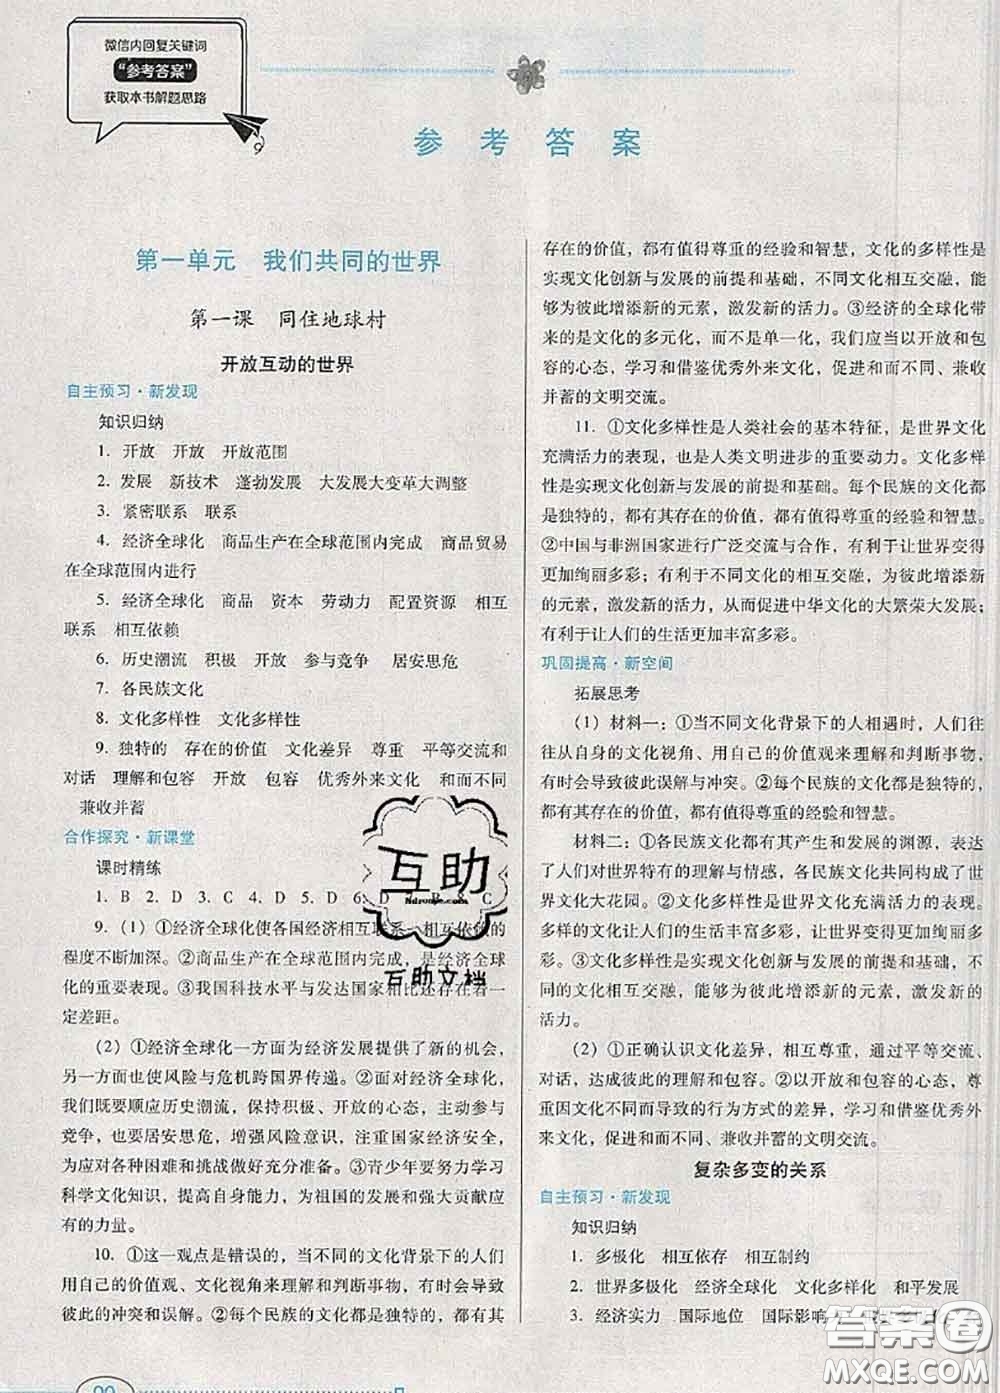 微信内回复关键词
“参考答案”
获取本书解题思路
参考答案
第一单元 我们共同的世界
第一课 同住地球村
开放互动的世界
自主预习·新发现
知识归纳
1. 开放 开放 开放范围
2. 发展 新技术 蓬勃发展 大发展大变革大调整
3. 紧密联系 联系
4. 经济全球化 商品生产在全球范围内完成 商品贸易
在全球范围内进行
5. 经济全球化 商品 资本 劳动力 配置资源 相互
联系 相互依赖
6. 历史潮流 积极 开放 参与竞争 居安思危
7. 各民族文化
8. 文化多样性 文化多样性
9. 独特的 存在的价值 文化差异 尊重 平等交流和
对话 理解和包容 开放 包容 优秀外来文化 和而不同
兼收并蓄
合作探究·新课堂
课时精练
1. B 2. D 3. C 4. D 5. D 6. D C
9. (1) ①经济全球化使各国经济相互联系、相互依赖的
程度不断加深。②商品生产在全球范围内完成，是经济全球
化的重要表现。③我国科技水平与发达国家相比还存在着一
定差距。
(2) ①经济全球化一方面为经济发展提供了新的机会，
另一方面也使风险与危机跨国界传递。②面对经济全球化，
我们既要顺应历史潮流，保持积极、开放的心态，主动参与
竞争，也要居安思危，增强风险意识，注重国家经济安全，
为应对各种困难和挑战做好充分准备。③青少年要努力学习
科学文化知识，提高自身能力，为祖国的发展和强大贡献应
有的力量。
10. ①这一观点是错误的，当不同的文化背景下的人们
用自己的价值观、文化视角来理解和判断事物，有时会导致
彼此的冲突和误解。②每个民族的文化都是独特的，都有其
存在的价值，都有值得尊重的经验和智慧，文化的多样性是
实现文化创新与发展的前提和基础，不同文化相互交融，能
够为彼此增添新的元素，激发新的活力。③经济的全球化带
来的是文化的多元化，而不是单一化，我们应当以开放和包
容的心态，学习和借鉴优秀外来文化，促进和而不同、兼收
并蓄的文明交流。
11. ①文化多样性是人类社会的基本特征，是世界文化
充满活力的表现，也是人类文明进步的重要动力。文化多样
性是实现文化创新与发展的前提和基础。每个民族的文化都
是独特的，都有其存在的价值，都有值得尊重的经验和智慧。
②中国与非洲国家进行广泛交流与合作，有利于让世界变得
更加绚丽多彩；有利于不同文化的相互交融，为彼此增添新
的元素，激发新的活力，从而促进中华文化的大繁荣大发展；
有利于让人们的生活更加丰富多彩。
巩固提高·新空间
拓展思考
(1) 材料一：①当不同文化背景下的人相遇时，人们往
往从自身的文化视角、用自己的价值观来理解和判断事物，
有时会导致彼此误解与冲突。②每个民族的文化都是独特的，
都有其存在的价值，都有值得尊重的经验和智慧。
材料二：①各民族文化都有其产生和发展的渊源，表达
了人们对世界特有的理解与情感，各民族文化共同构成了世
界文化大花园。②文化多样性是世界文化充满活力的表现。
多样的文化让人们的生活丰富多彩，让世界变得更加绚丽多
彩。③文化多样性是实现文化创新与发展的前提和基础，不
同的文化相互交融，能够为彼此增添新的元素，激发新的
活力。
(2) ①正确认识文化差异，相互尊重，通过平等交流、
对话，达成彼此的理解和包容。②以开放和包容的心态，尊
重因文化不同而导致的行为方式的差异，学习和借鉴优秀外
来文化，促进和而不同、兼收并蓄的文明交流。
复杂多变的关系
自主预习·新发现
知识归纳
1. 多极化 相互依存 相互制约
2. 世界多极化 经济全球化 文化多样化 和平发展
3. 经济实力 国际地位 国际影响
互助
互助文档
答案圈
MXQE.COM